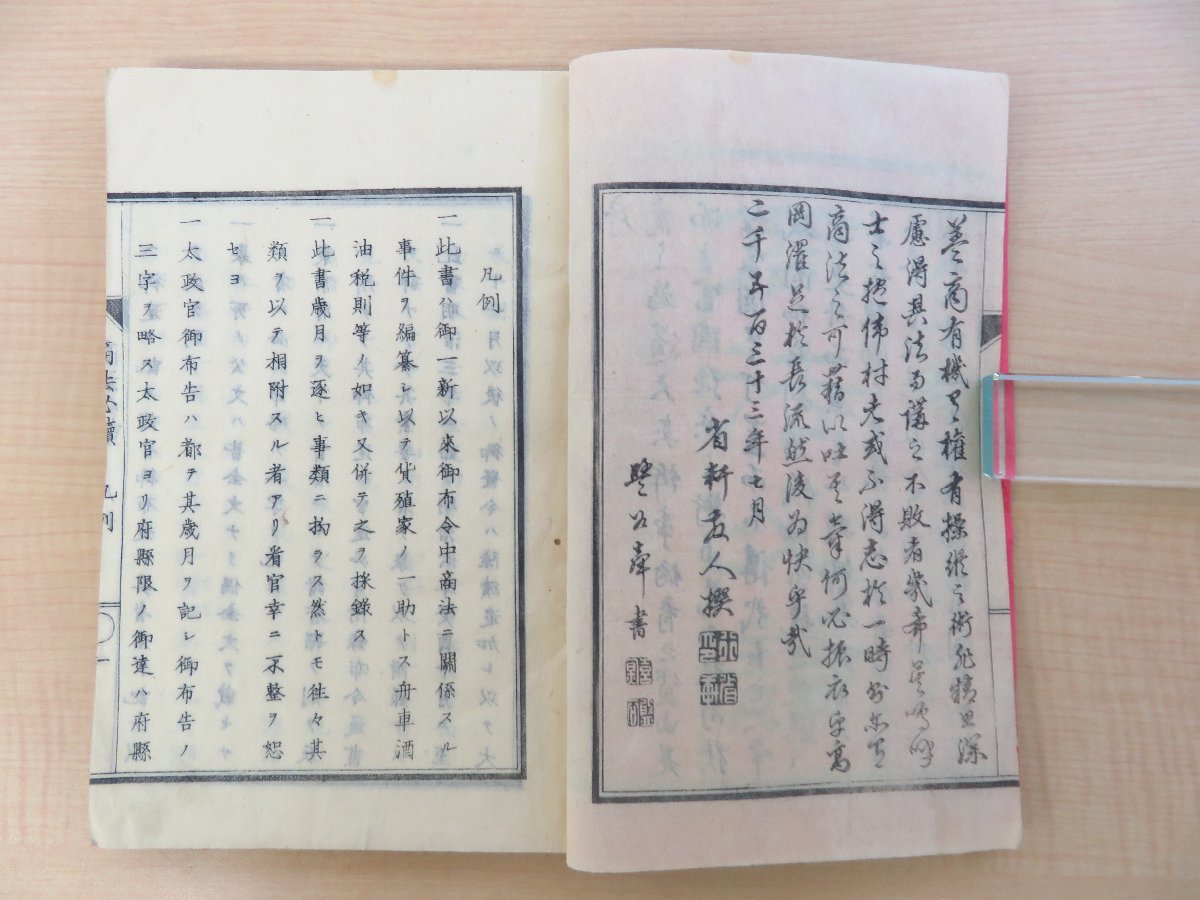 蓋商有機有權有操縱之術非精思深
慮得其法而講之不敗者幾希嗚呼
士之抱偉材老或不得志於一時
商法之可藉以吐其奇何必振衣乎高
岡濯足於長流然後為快乎哉
二千五百三十三年七月
省軒友人撰
書
凡例
一此書ハ御一新以來御布令中商法ニ關係スル
事件ヲ編纂シ以テ貨殖家ノ一助トス舟車酒
油税則等ノ如キ又併テ之ヲ採錄ス
一此書歲月ヲ逐ヒ事類ニ拘ラス然トモ往々其
類ヲ以テ相附スル者アリ看官幸ニ不整ヲ恕
セヨ
一太政官御布告ハ都テ其歲月ヲ記シ御布告ノ
三字ヲ略ス太政官ヨリ府縣限ノ御達ハ府縣
商法必讀 凡例 一